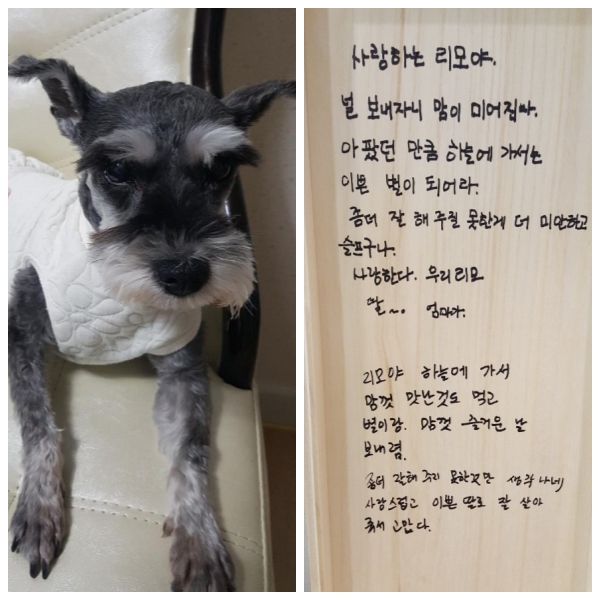 사랑하는 리모야.
널 보내자니 맘이 미어집다.
아팠던 만큼 하늘에 가서는
이쁜 별이 되어라.
좀더 잘 해 주질 못한게 더 미안하고
슬프구나.
사랑한다. 우리 리모
딸~. 엄마가.
리모야 하늘에 가서
맘껏 맛난것도 먹고
별이랑. 맘껏 즐거운 날
보내렴.
좀더 잘해 주지 못한것만 생각나네
사랑스럽고 이쁜 딸로 잘 살아
줘서 고맙다.